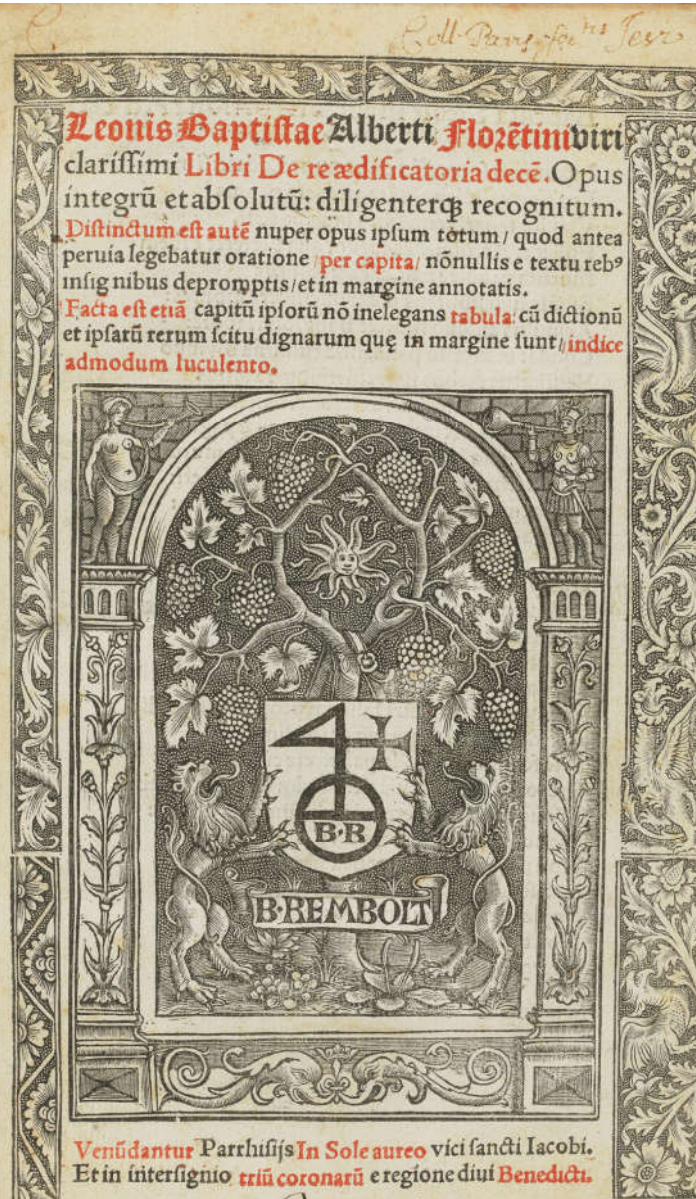 Coll. Paris. Soc.tis Jesu
Leonis Baptistae Alberti Florẽtini viri
clarissimi Libri De re ædificatoria decẽ. Opus
integrũ et absolutũ: diligenterq̃ recognitum.
Distinctum est autẽ nuper opus ipsum totum / quod antea
peruia legebatur oratione per capita / nõnullis e textu rebꝰ
insignibus depromptis / et in margine annotatis.
Facta est etiã capitũ ipsorũ nõ inelegans tabula: cũ dictionũ
et ipsarũ rerum scitu dignarum quę in margine sunt / indice
admodum luculento.
B·R
B·REMBOLT
Venũdantur Parrhisijs In Sole aureo vici sancti Iacobi.
Et in intersignio triũ coronarũ e regione diui Benedicti.